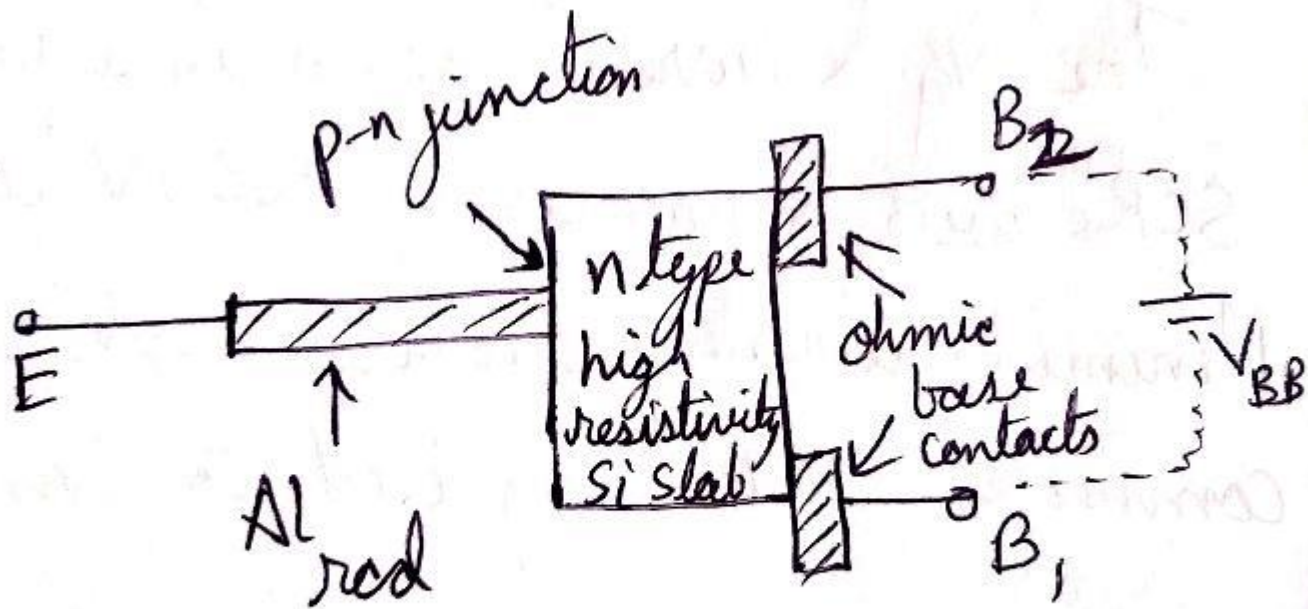 p-n junction
B2
n type
high
resistivity
Si slab
ohmic
base
contacts
VBB
E
Al
rod
B1